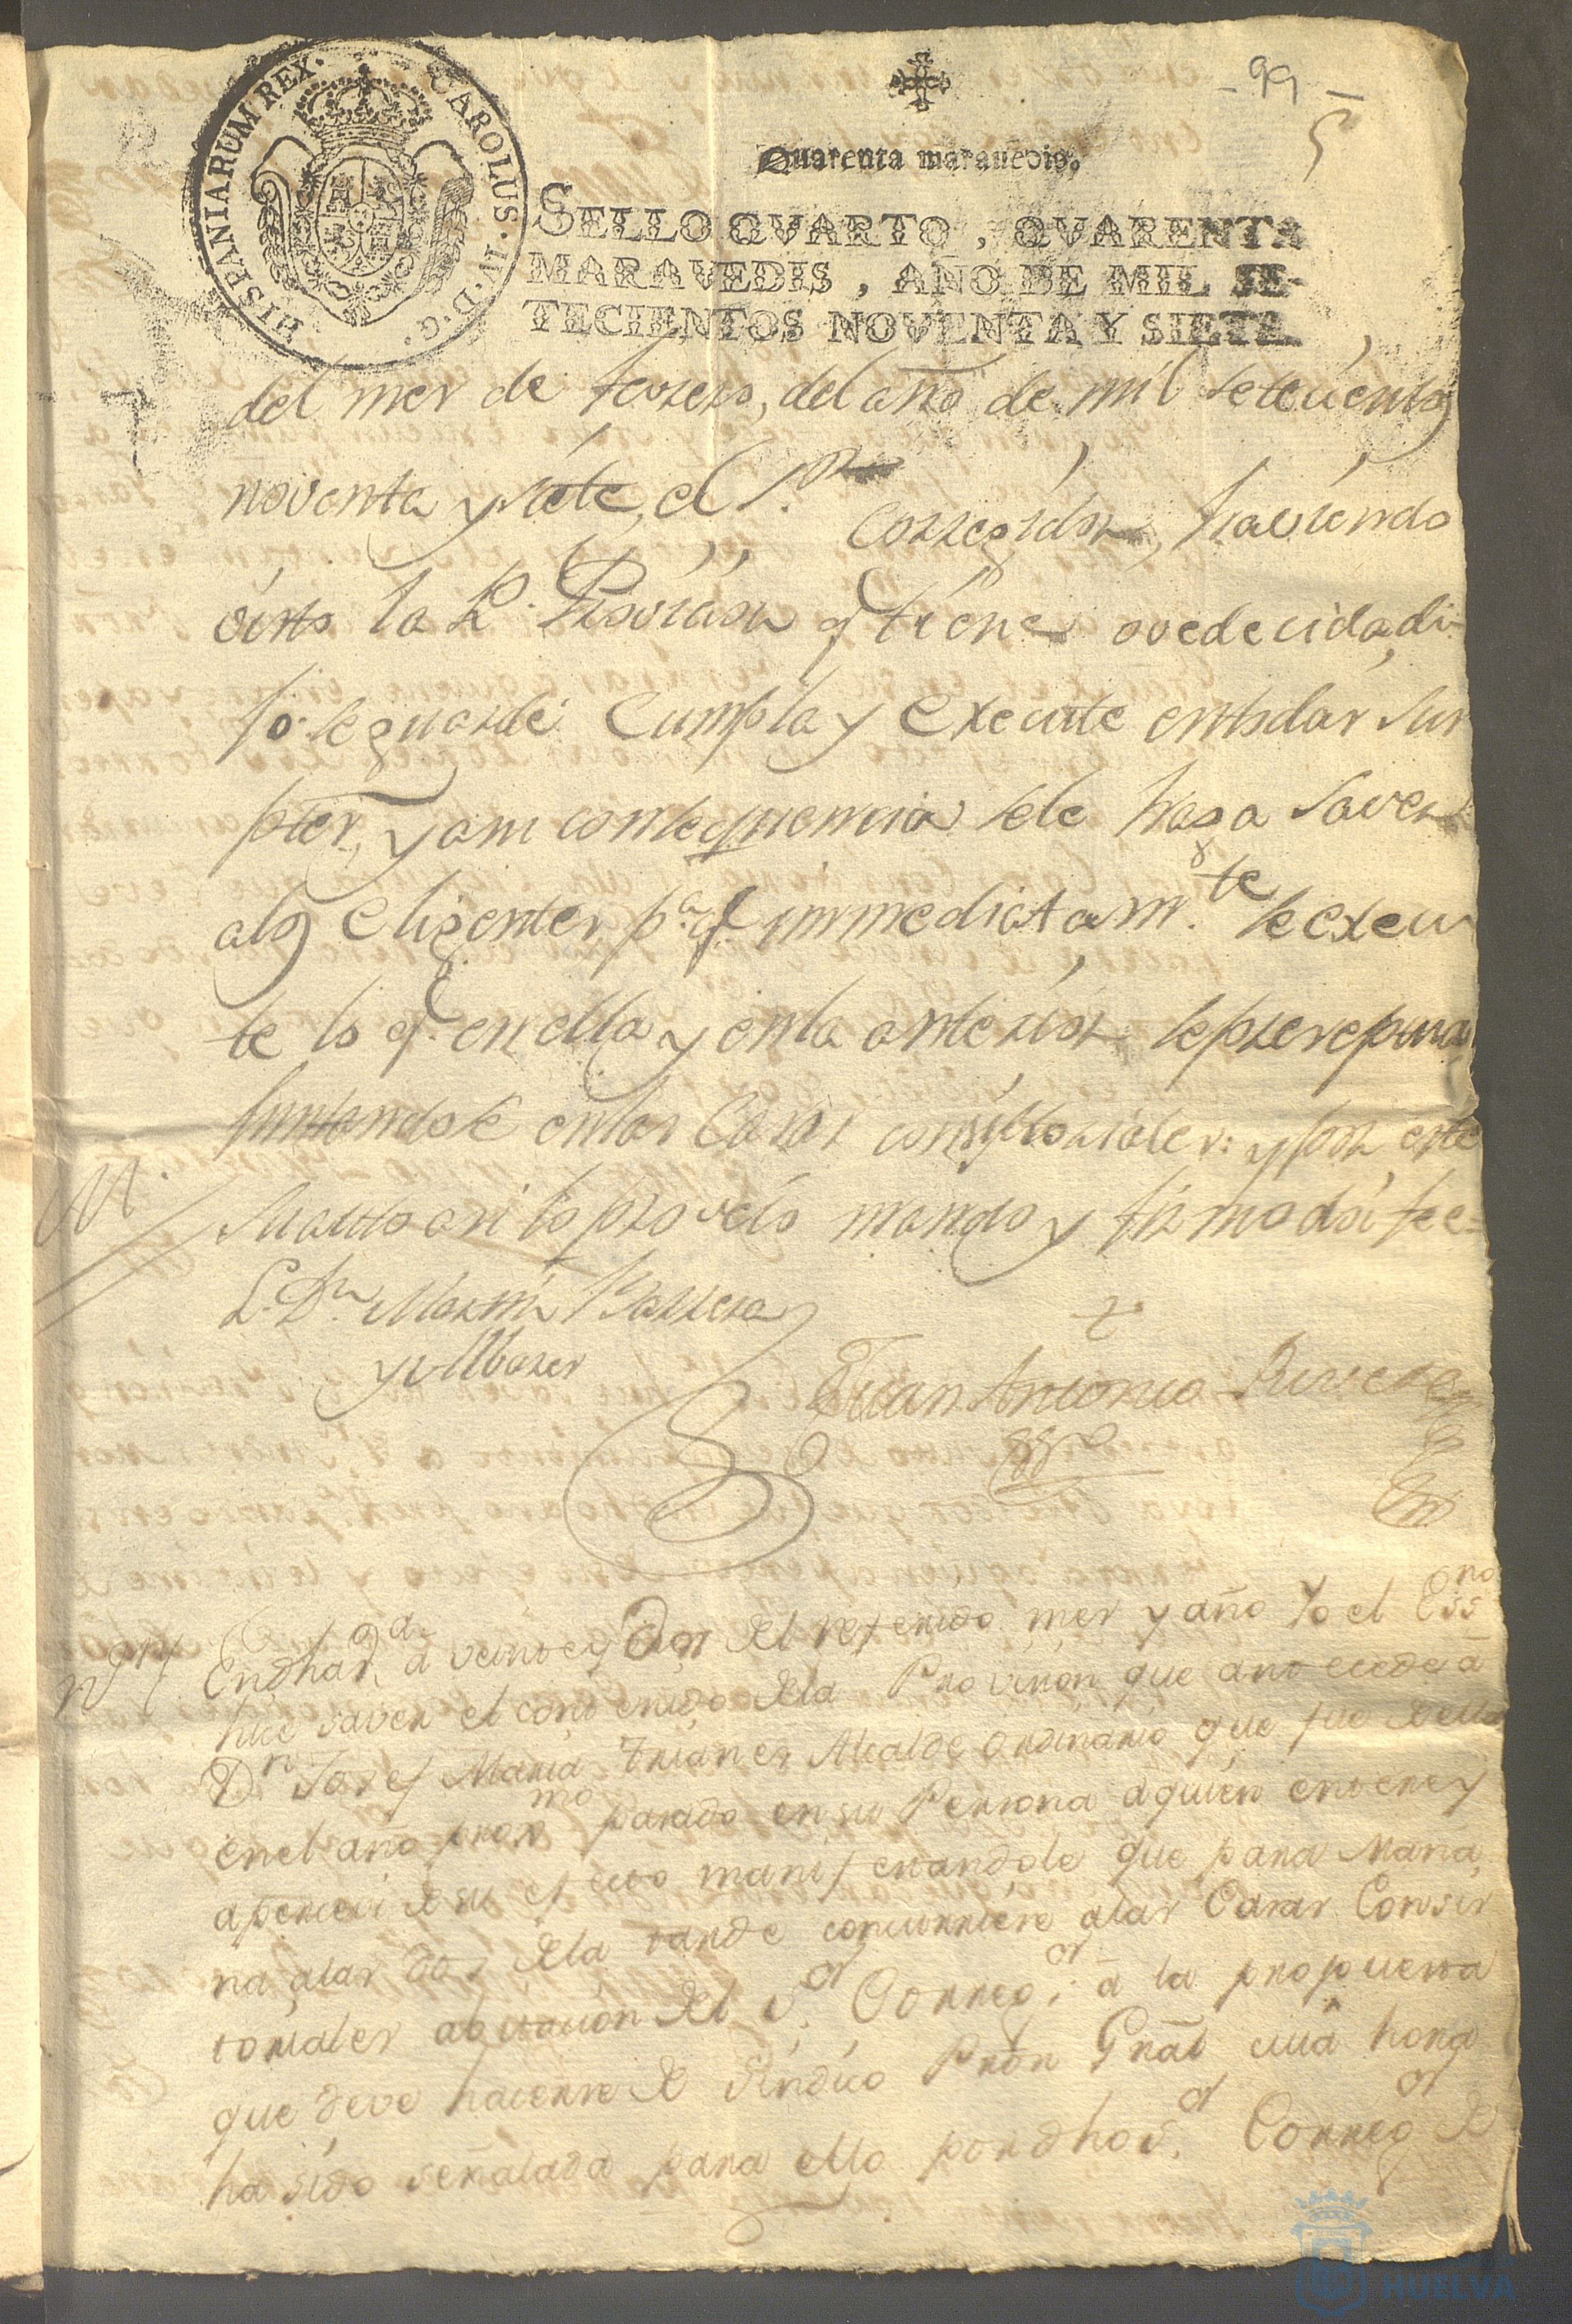 - 99 -
5
HISPANIARUM REX. CAROLUS. IV. D. G.
Quarenta maravedis.
SELLO QVARTO, QVARENTA
MARAVEDIS, AÑO DE MIL SE-
TECIENTOS NOVENTA Y SIETE.
del mes de febrero, del año de mil setecientos
noventa y siete, el S.or Corregidor, haviendo
visto la R.l Provision q.e tiene ovedecida, di-
jo se guarde Cumpla y Execute entodas sus
ptes, y asu consequencia sele haga saver
alos Eligentes p.a q.e immediatam.te se execu
te lo q.e en ella y enla anterior se
Juntandose enlas Casas consistoriales: y por este
su auto asi lo proveio mando y firmo doi fee=
L. Dn. Martin Barrera
Juan Antonio Rivera
Ess.no
Not.
En dha d veinte y dos del referido mes y año Yo el Ess.no
hice saver el contenido dela Provision que antecede á
Dn. Josef Maria Trianes Alcalde Ordinario que fue de ella
enel año prox.mo pasado en su Persona aquien entere y
aperciví de su efecto manifestandole que para Maña
na, alas dos dela tarde concurriese alas Casas Consis
toriales abitacion del S.or Correg.or á la propuesta
que deve hacerse de Sindico Pror̃ Gñal cuia hora
ha sido señalada para ello por dho S.or Correg.or de
HUELVA